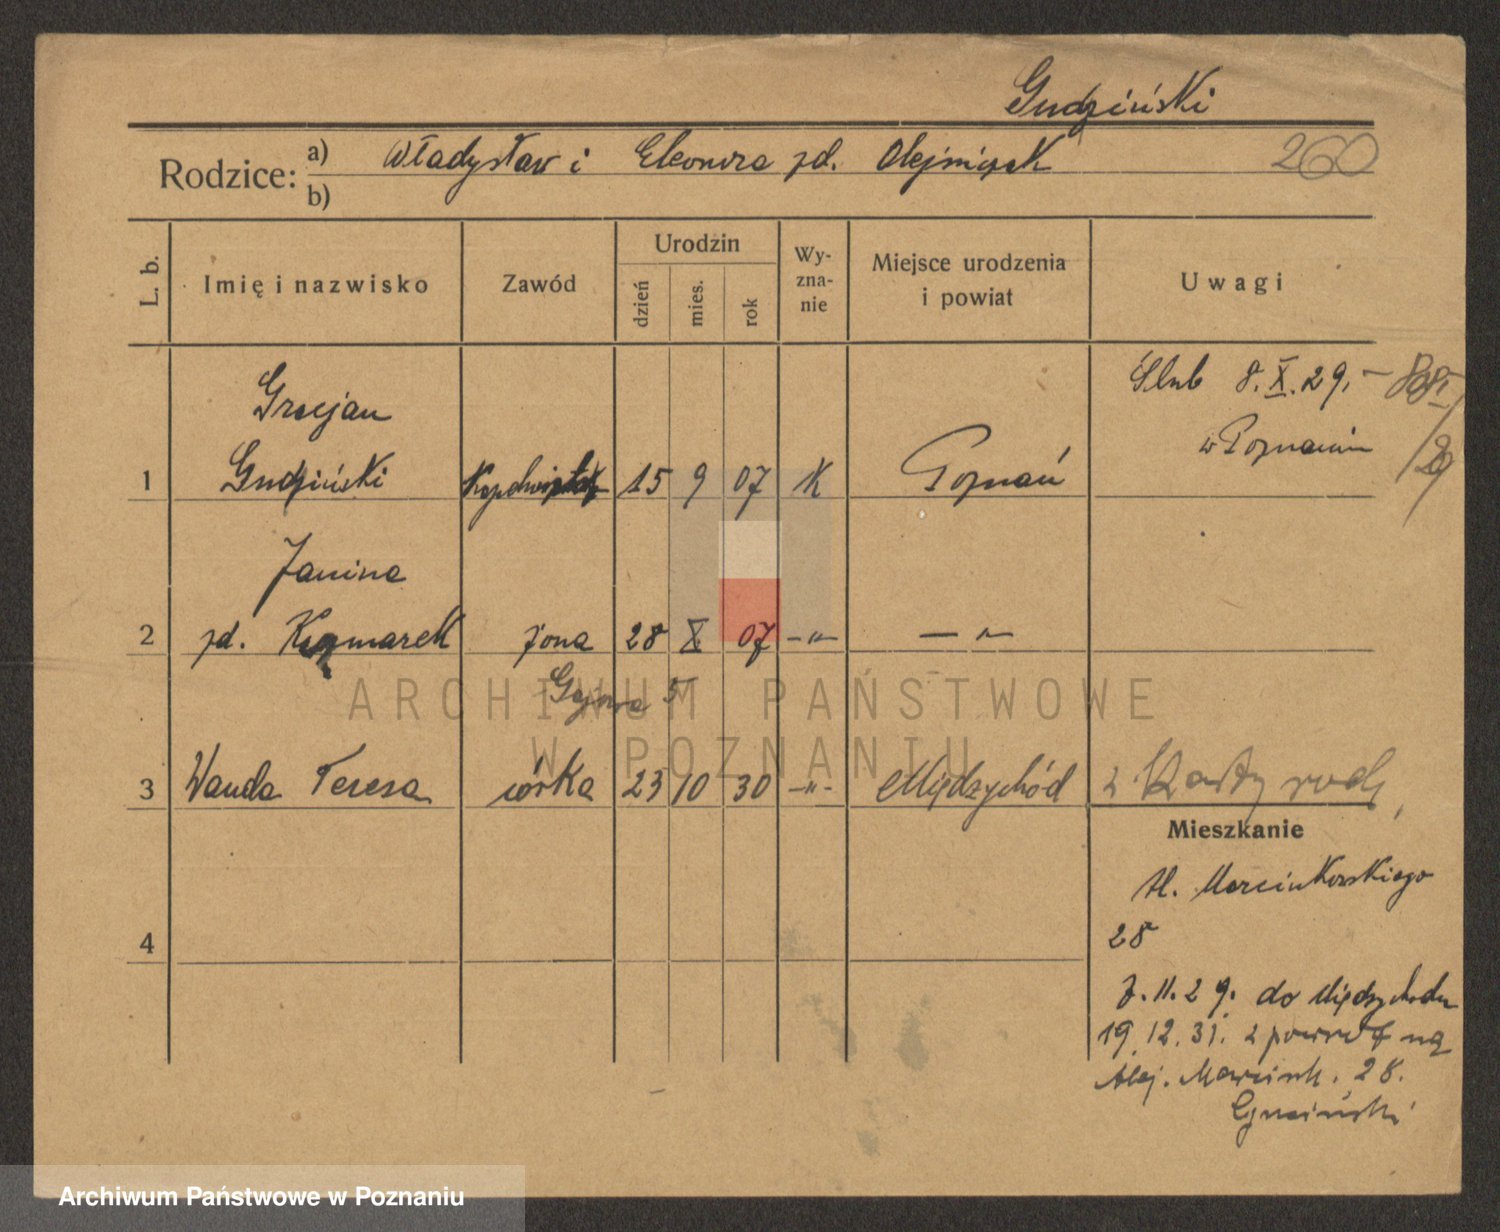 Gudziński
Rodzice: a) Władysław i Eleonora zd. Olejniczak 260
b)
L. b. Imię i nazwisko Zawód Urodzin dzień mies. rok Wy-zna-nie Miejsce urodzenia i powiat Uwagi
Gracjan Ślub 8.X.29.-
w Poznaniu
1 Gudziński 15 9 07 K Poznań
Janina
2 zd. Kaczmarek żona 28 X. 07 -"- -"-
Gajowa 5
3 Wanda Teresa córka 23 10 30 -"- Międzychód z Karty rodz.
Mieszkanie
Al. Marcinkowskiego
28
4
7.11.29. do Międzychodu
19.12.31. z powrot na
Alej. Marcink. 28.
ARCHIWUM PAŃSTWOWE
W POZNANIU
Archiwum Państwowe w Poznaniu